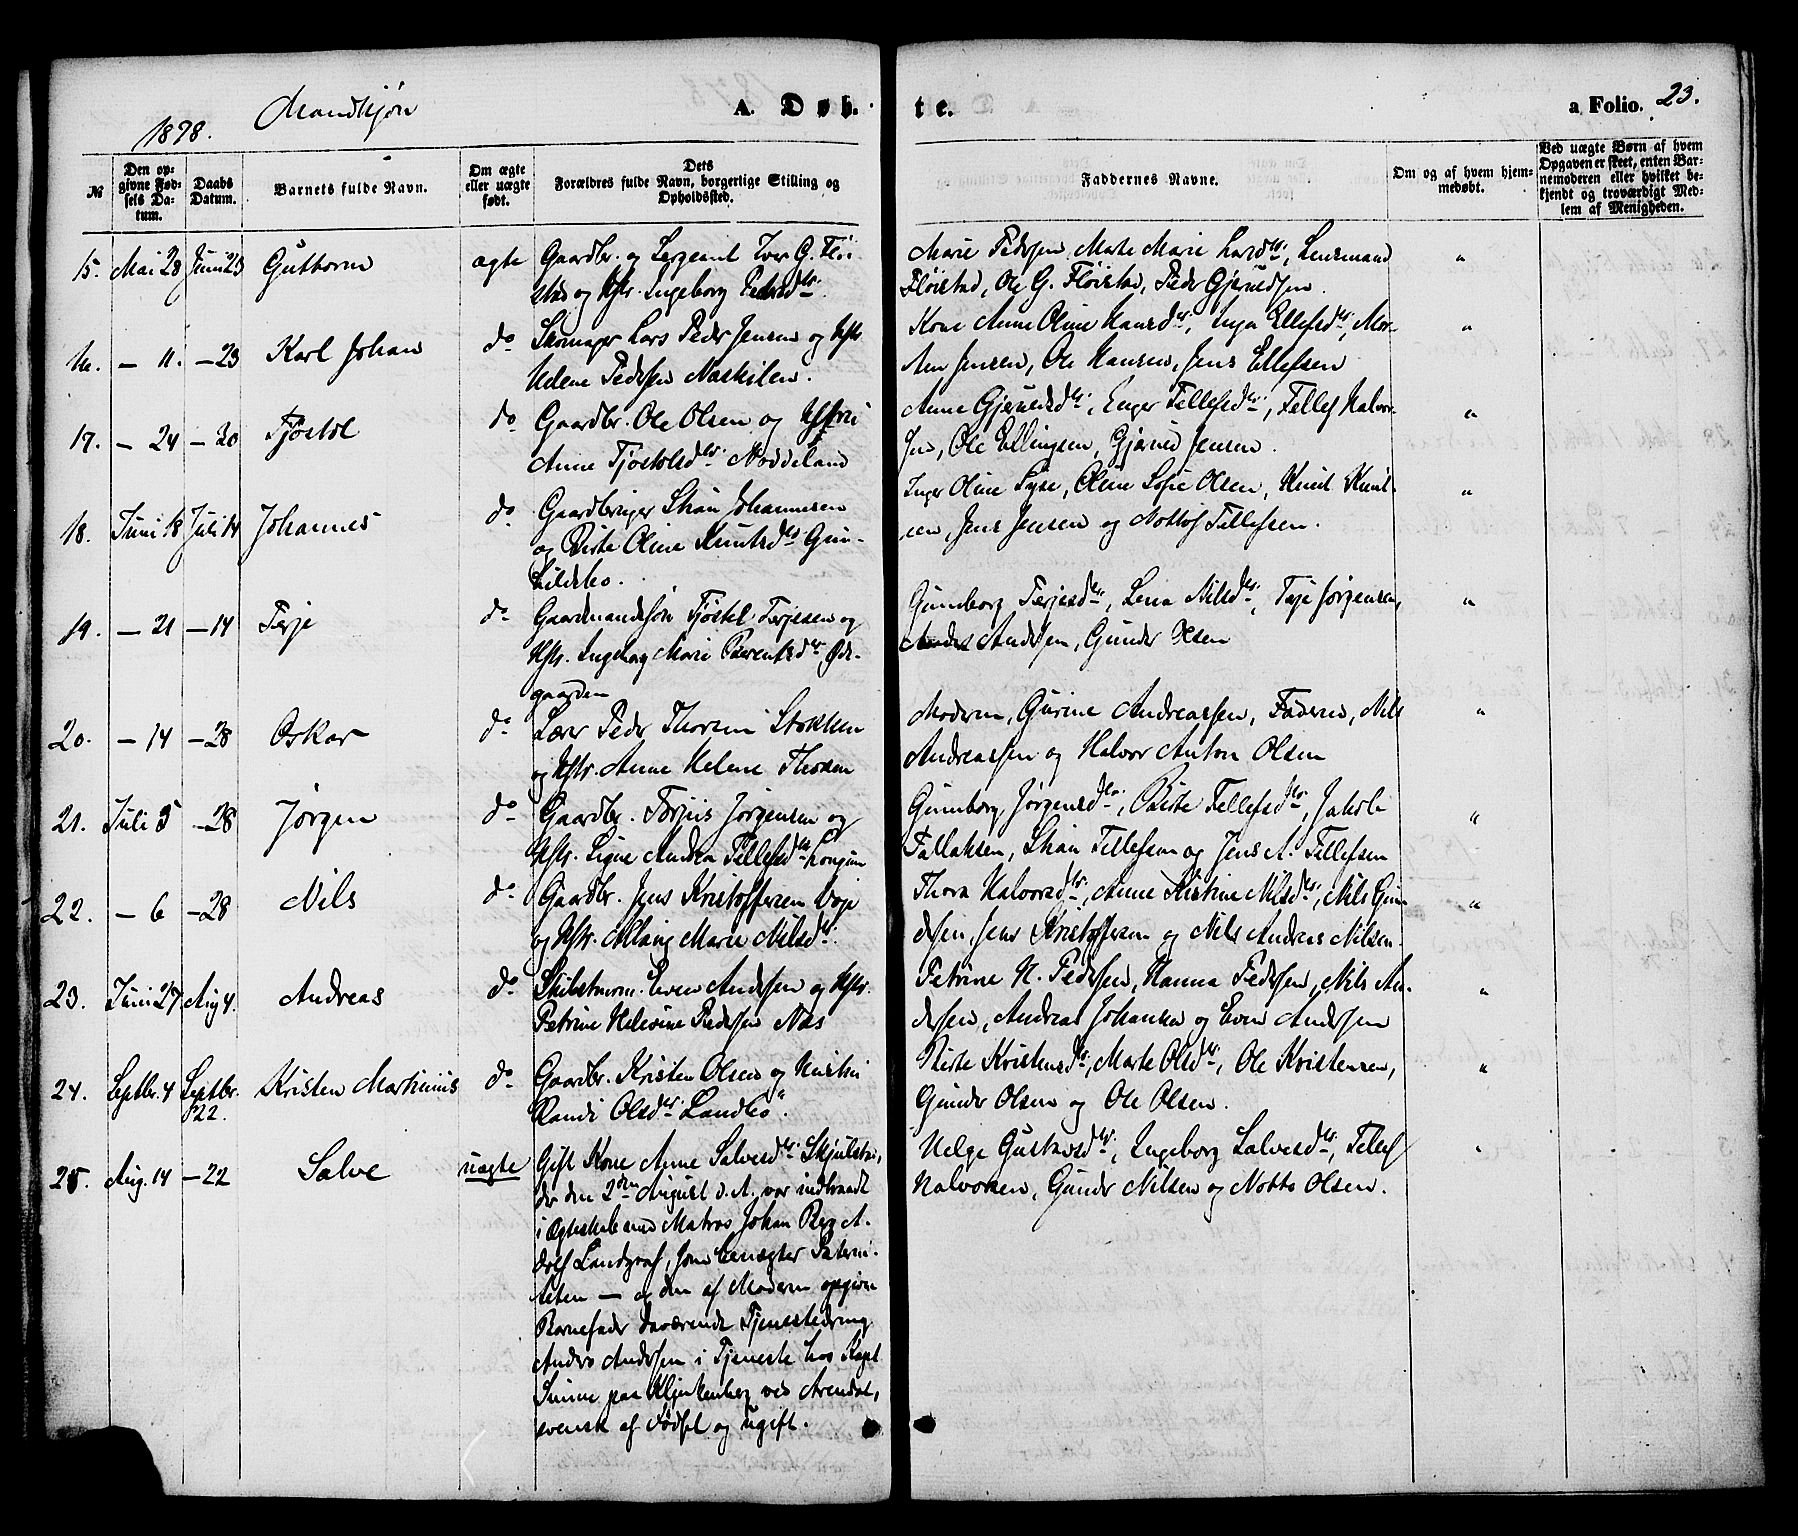 1878. Mandkjøn A. Døbte. a Folio. 23.
№
Den opgivne Fødsels Datum.
Daabs Datum.
Barnets fulde Navn.
Om ægte eller uægte født.
Dets Forældres fulde Navn, borgerlige Stilling og Opholdssted.
Faddernes Navne.
Om og af hvem hjemmedøbt.
Ved uægte Børn af hvem Opgaven er skeet, enten Barnemoderen eller hvilket bekjendt og troværdigt Medlem af Menigheden.
15. Mai 28 Juni 23 Guttorm ægte Gaardbr. og Sergeant Iver G. Fløi-
stad og Hstr. Ingeborg Pedersdtr.
Marie Pedersen, Marte Marie Larsdtr, Lensmand
Fløistad, Ole G. Fløistad, Peder Gjeruldsen. "
16. — 11. — 23 Karl Johan do Skomager Lars Peder Jensen og Hstr
Helene Pedersen Naskilen.
Kone Anne Oline Hansdtr, Inga Ellefsdtr, Mor-
ten Jensen, Ole Hansen, Jens Ellefsen "
17. — 24 — 30 Tjøstol do Gaardbr. Ole Olsen og Hustru
Anne Tjøstolsdtr Noddeland
Anne Gjeruldsdtr, Enger Tellefsdtr, Tellef Halvor-
sen, Ole Ellingsen, Gjeruld Jensen. "
18. Juni 18 Juli 14 Johannes do Gaardbruger Stian Johannesen
og Birte Oline Knutsdtr Gun-
hildsbo.
Inger Oline Syse, Oline Sofie Olsen, Knut Knut-
sen, Jens Jensen og Nottof Tellefsen. "
19. — 21 — 14 Terje do Gaardmandssøn Tjøstol Terjesen og
Hstr. Ingeborg Marie Berentsdtr Øde-
gaarden
Gunborg Terjesdtr, Lena Nilsdtr, Terje Jørgensen,
Anders Andersen, Gunder Olsen "
20. — 14 — 28 Oskar do Lærer Peder Thorsen Stokken
og Hstr. Anne Helene Thorsen
Moderen, Gurine Andreassen, Faderen, Nils
Andreassen og Halvor Anton Olsen "
21. Juli 5 — 28 Jørgen do Gaardbr. Torjus Jørgensen og
Hstr. Signe Andrea Tellefsdtr Longum
Gunborg Jørgensdtr, Birte Tellefsdtr, Jakob
Fallaksen, Stian Tellefsen og Jens A. Tellefsen "
22. — 6 — 28 Nils do Gaardbr. Jens Kristoffersen Voje
og Hstr. Allaug Marie Nilsdtr.
Thora Halvorsdtr, Anne Kirstine Nilsdtr, Nils Gun-
dersen, Jens Kristoffersen og Nils Andreas Nilsen. "
23. Juni 27 Aug 4. Andreas do Skibstømm. Even Andersen og Hstr.
Petrine Helevine Pedersen Næs
Petrine N. Pedersen, Hanna Pedersen, Nils An-
dersen, Andreas Johansen og Even Andersen "
24. Septbr. 4 Septbr. 22. Kristen Martinius do Gaardbr. Kristen Olsen og Hustru
Randi Olsdtr. Landbo.
Birte Kristensdtr, Marte Olsdtr, Ole Kristensen,
Gunder Olsen og Ole Olsen. "
25. Aug. 14 — 22 Salve uægte Gift Kone Anne Salvesdtr Skjulstad,
der den 2den August d. A. var indtraadt
i Ægteskab med Matros Johan Adolf
Landgraf, som benægter Paterni-
teten — og den af Moderen opgivne
Barnefader daværende Tjenestedreng
Anders Andersen i Tjeneste hos Kapt
paa Klinkenberg ved Arendal,
svensk af Fødsel og ugift.
Helge Gustavsdtr, Ingeborg Salvesdtr, Tellef
Halvorsen, Gunder Nilsen og Notto Olsen. "